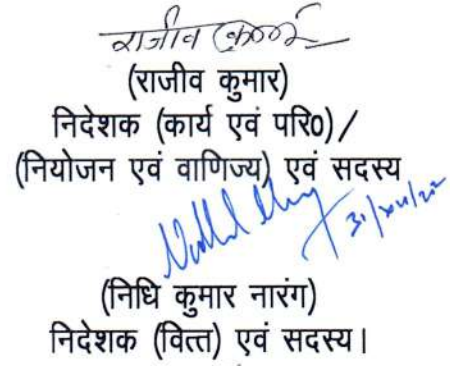 राजीव कुमार
(राजीव कुमार)
निदेशक (कार्य एवं परि0)/
(नियोजन एवं वाणिज्य) एवं सदस्य
(निधि कुमार नारंग)
निदेशक (वित्त) एवं सदस्य।